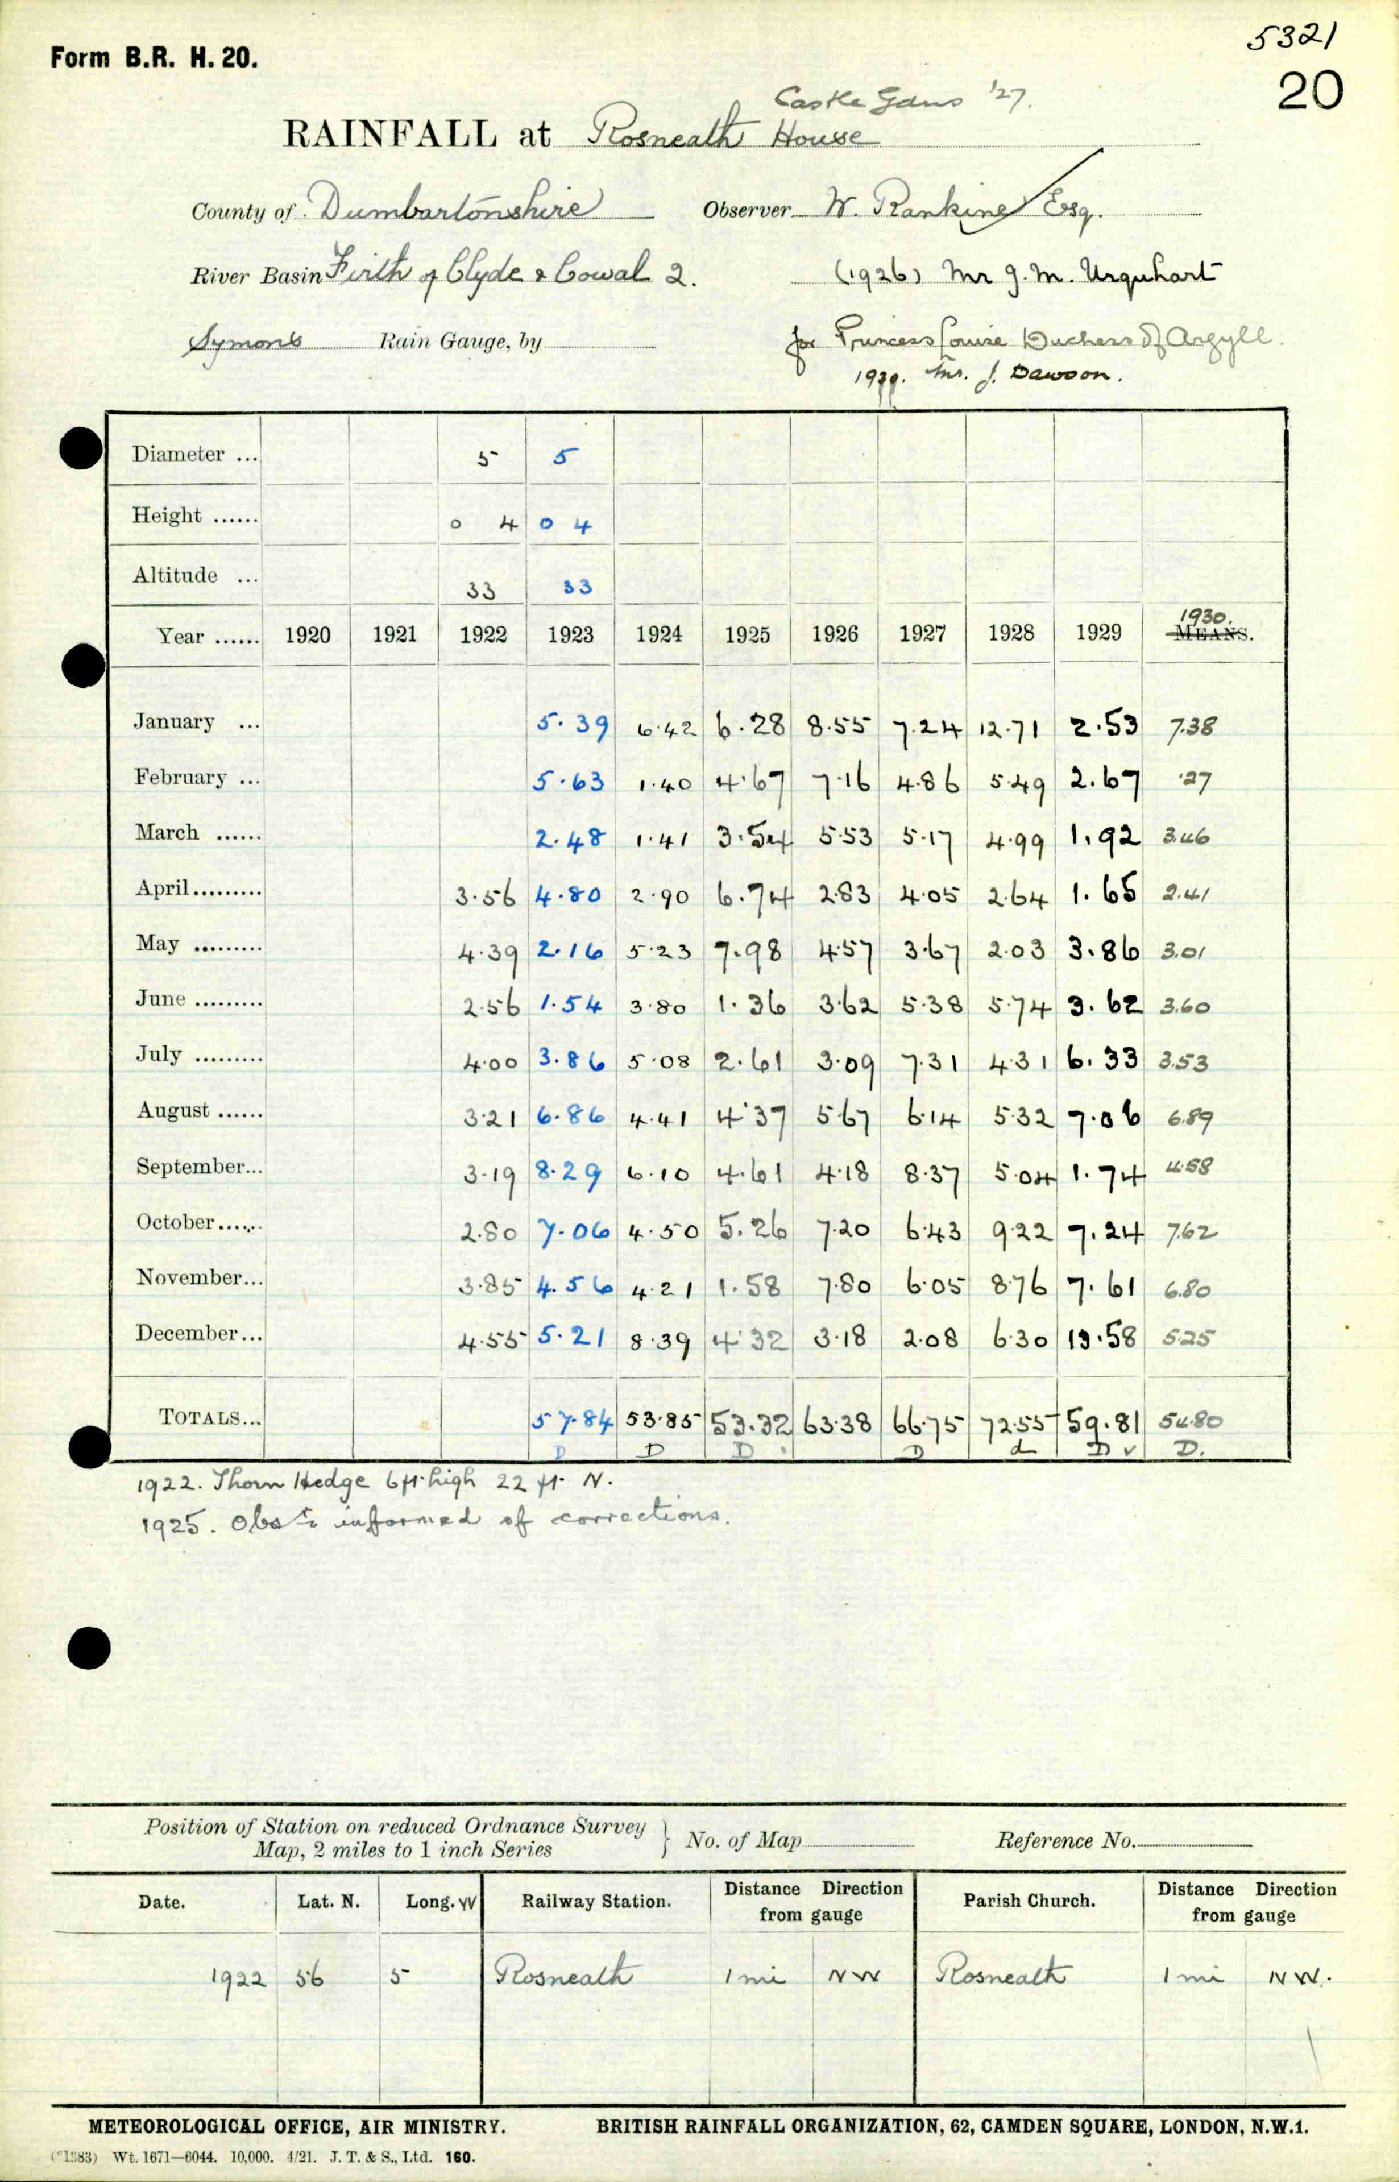 5321
Form B.R. H. 20.
20
Castle Gdns '27.
RAINFALL at Rosneath House
County of Dumbartonshire Observer W. Rankine Esq.
River Basin Firth of Clyde & Cowal 2. (1926) Mr J. M. Urquhart
Symons Rain Gauge, by for Princess Louise Duchess of Argyll.
Mr. J. Dawson.
Diameter ... 5 5
Height ...... 0 4 0 4
Altitude ... 33 33
1930.
Year ...... 1920 1921 1922 1923 1924 1925 1926 1927 1928 1929 MEANS.
January ... 5.39 6.42 6.28 8.55 7.24 12.71 2.53 7.38
February ... 5.63 1.40 4.67 7.16 4.86 5.49 2.67 .27
March ...... 2.48 1.41 3.54 5.53 5.17 4.99 1.92 3.46
April......... 3.56 4.80 2.90 6.74 2.83 4.05 2.64 1.65 2.41
May ......... 4.39 2.16 5.23 7.98 4.57 3.67 2.03 3.86 3.01
June ......... 2.56 1.54 3.80 1.36 3.62 5.38 5.74 3.62 3.60
July ......... 4.00 3.86 5.08 2.61 3.09 7.31 4.31 6.33 3.53
August ...... 3.21 6.86 4.41 4.37 5.67 6.14 5.32 7.06 6.89
September... 3.19 8.29 6.10 4.61 4.18 8.37 5.04 1.74 4.58
October...... 2.80 7.06 4.50 5.26 7.20 6.43 9.22 7.24 7.62
November... 3.85 4.56 4.21 1.58 7.80 6.05 8.76 7.61 6.80
December... 4.55 5.21 8.39 4.32 3.18 2.08 6.30 13.58 5.25
TOTALS... 57.84 53.85 53.32 63.38 66.75 72.55 59.81 54.80
D D D D d D v D.
1922. Thorn Hedge 6ft. high 22 ft. N.
1925. Obsr. informed of corrections.
Position of Station on reduced Ordnance Survey
Map, 2 miles to 1 inch Series } No. of Map Reference No.
Date. Lat. N. Long. W Railway Station. Distance Direction from gauge Parish Church. Distance Direction from gauge
1922 56 5 Rosneath 1 mi NW Rosneath 1 mi NW.
METEOROLOGICAL OFFICE, AIR MINISTRY. BRITISH RAINFALL ORGANIZATION, 62, CAMDEN SQUARE, LONDON, N.W.1.
Wt. 1671—6044. 10,000. 4/21. J. T. & S., Ltd. 160.